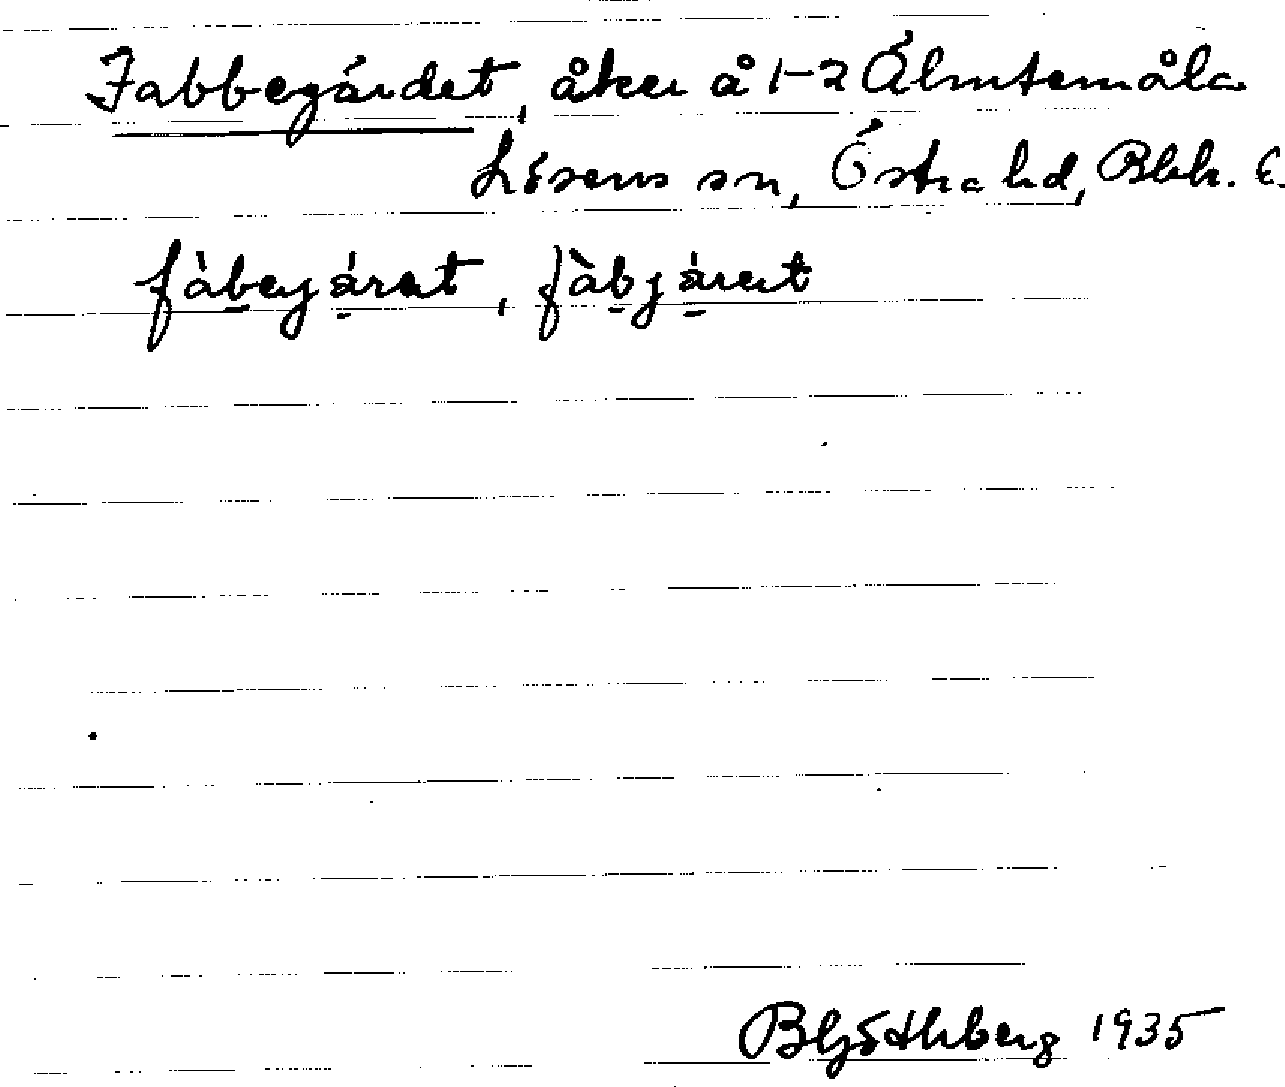 Fabbegärdet, åker å 1-2 Älmtemåla
Lösens sn, Östra hd, Blek. l.
fàbegä́rat, fàbjä́rɐt
B Ljöthberg 1935